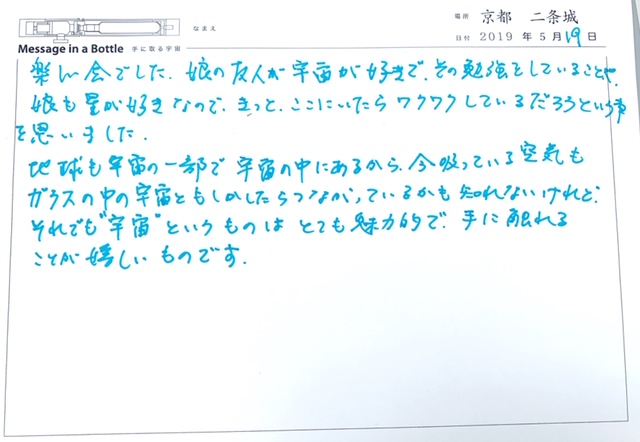 なまえ
場所 京都 二条城
Message in a Bottle 手に取る宇宙
日付 2019 年 5 月 19 日
楽しい会でした。娘の友人が宇宙が好きで、その勉強をしていることや、
娘も星が好きなので、きっと、ここにいたらワクワクしているだろうという事
を思いました。
地球も宇宙の一部で宇宙の中にあるから、今吸っている空気も
ガラスの中の宇宙ともしかしたらつながっているかも知れないけれど、
それでも"宇宙"というものはとても魅力的で、手に触れる
ことが嬉しいものです。